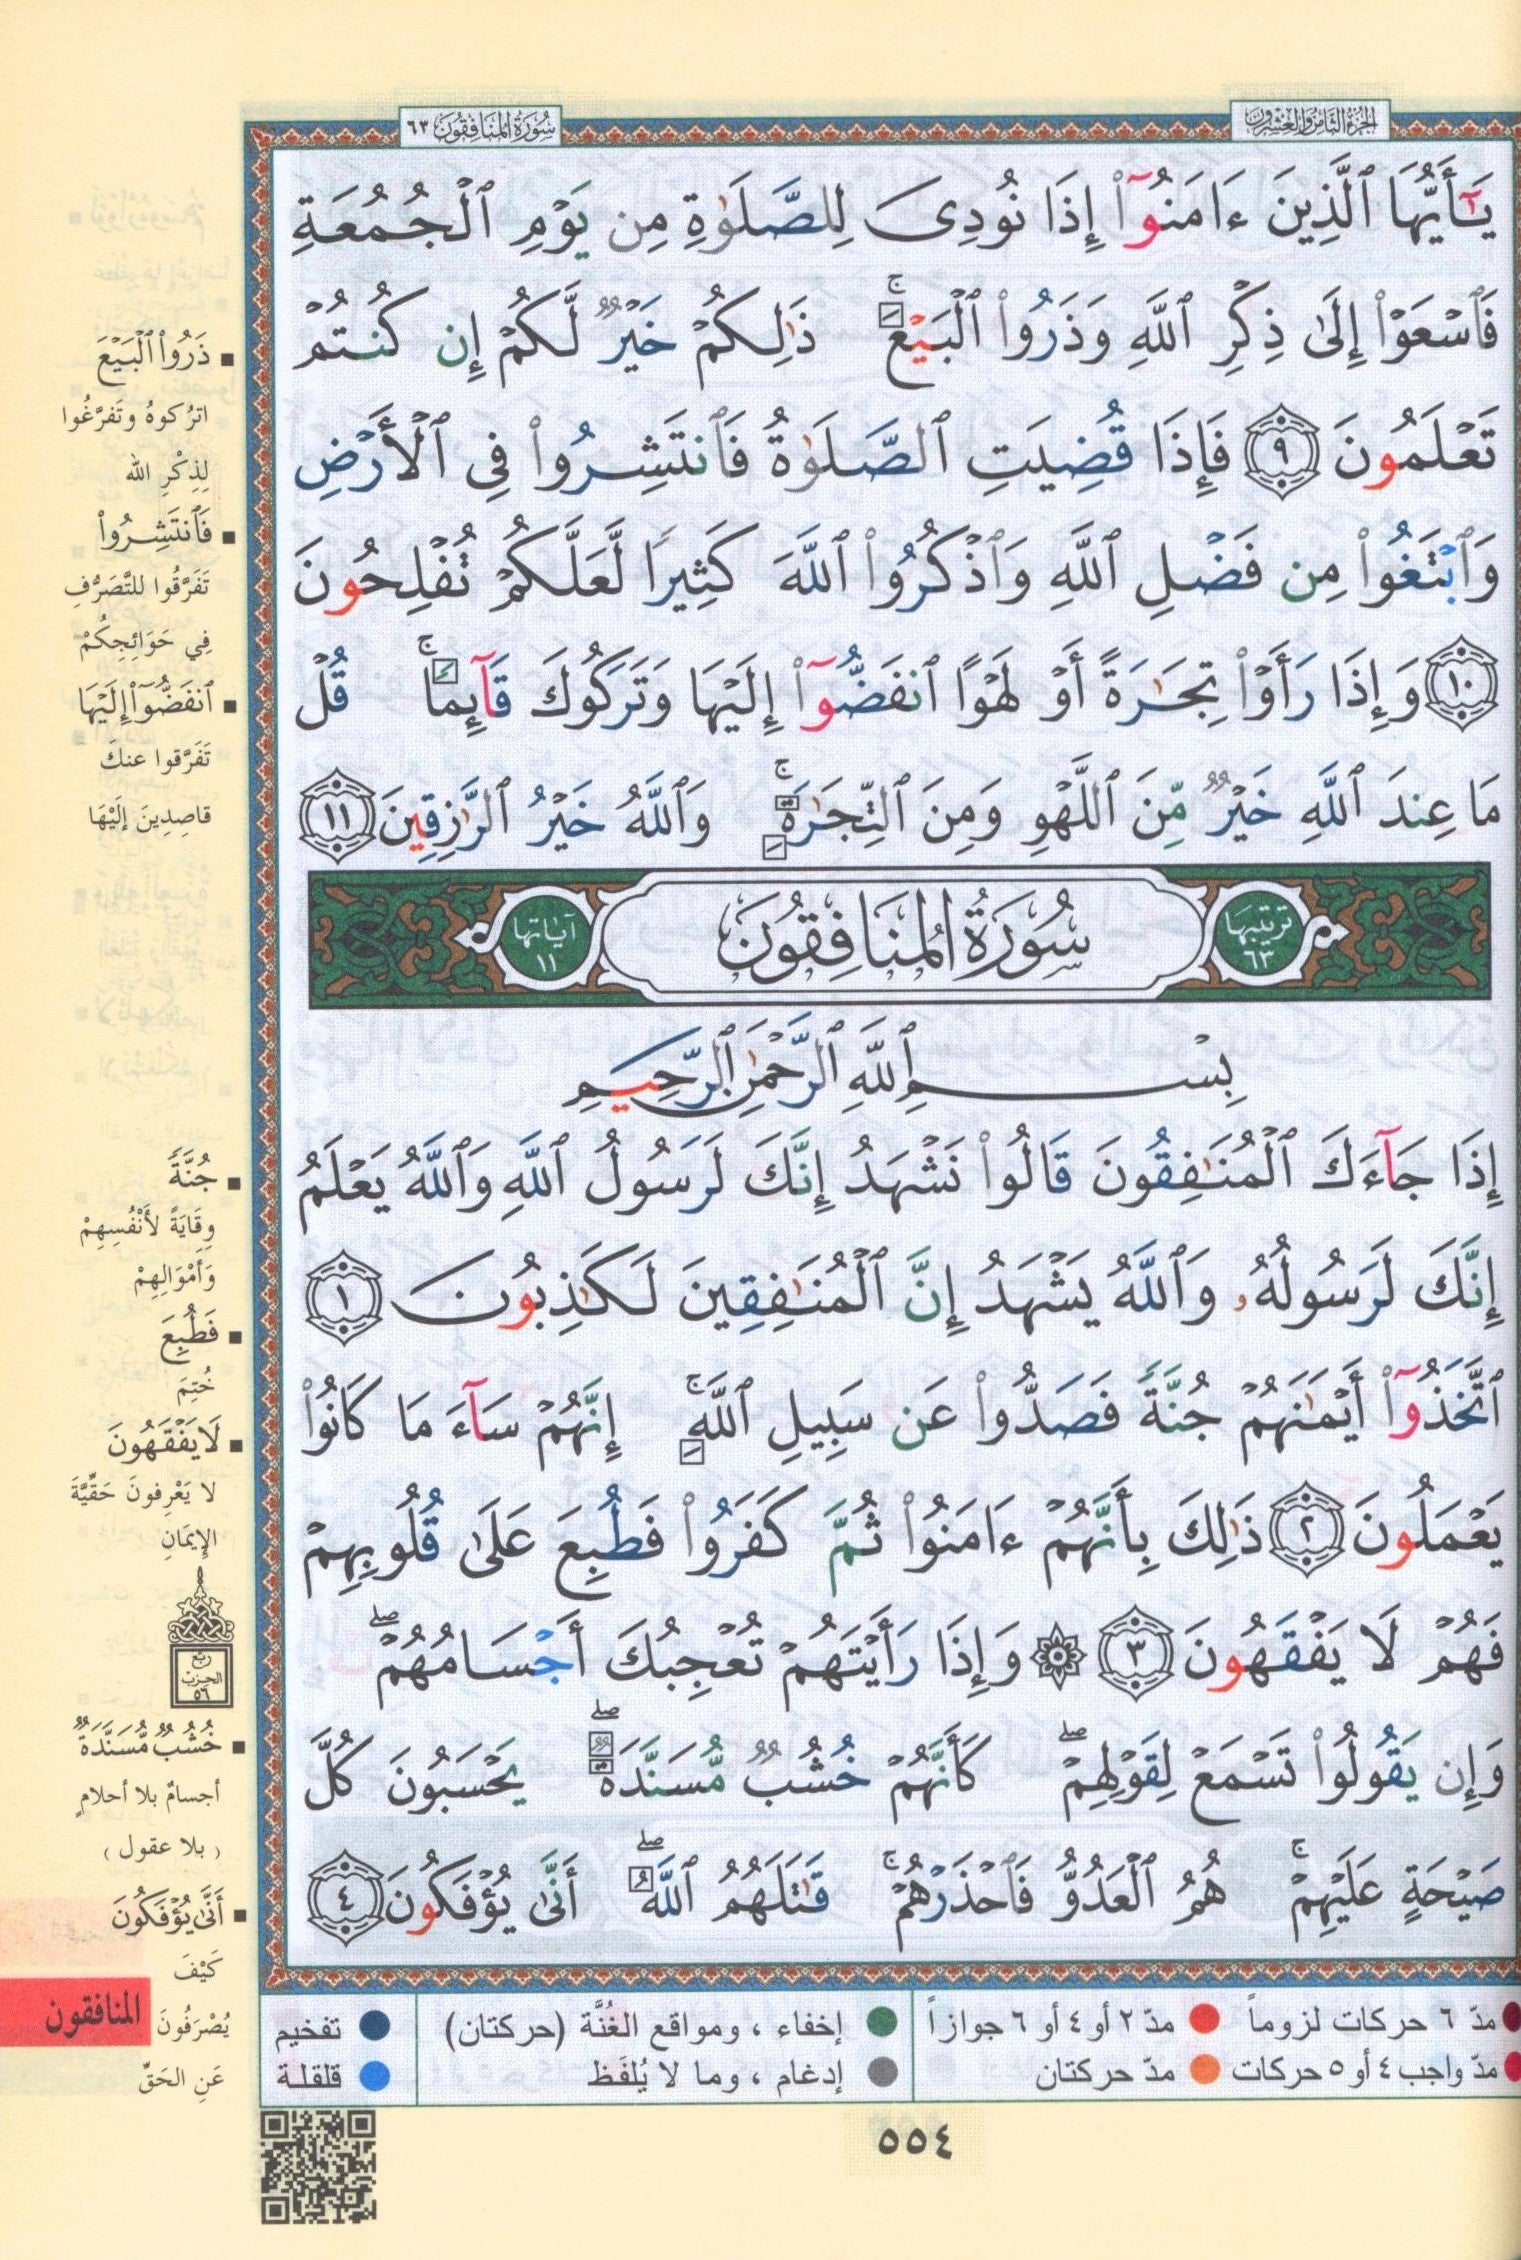 الجزء الثامن والعشرون
سورة المنافقون ٦٣
يَـٰٓأَيُّهَا ٱلَّذِينَ ءَامَنُوٓا۟ إِذَا نُودِىَ لِلصَّلَوٰةِ مِن يَوْمِ ٱلْجُمُعَةِ
فَٱسْعَوْا۟ إِلَىٰ ذِكْرِ ٱللَّهِ وَذَرُوا۟ ٱلْبَيْعَ ۚ ذَٰلِكُمْ خَيْرٌ لَّكُمْ إِن كُنتُمْ
تَعْلَمُونَ ٩ فَإِذَا قُضِيَتِ ٱلصَّلَوٰةُ فَٱنتَشِرُوا۟ فِى ٱلْأَرْضِ
وَٱبْتَغُوا۟ مِن فَضْلِ ٱللَّهِ وَٱذْكُرُوا۟ ٱللَّهَ كَثِيرًا لَّعَلَّكُمْ تُفْلِحُونَ
١٠ وَإِذَا رَأَوْا۟ تِجَـٰرَةً أَوْ لَهْوًا ٱنفَضُّوٓا۟ إِلَيْهَا وَتَرَكُوكَ قَآئِمًا ۚ قُلْ
مَا عِندَ ٱللَّهِ خَيْرٌ مِّنَ ٱللَّهْوِ وَمِنَ ٱلتِّجَـٰرَةِ ۚ وَٱللَّهُ خَيْرُ ٱلرَّٰزِقِينَ ١١
ترتيبها ٦٣
سُورَةُ المُنَافِقُونَ
آياتها ١١
بِسْمِ ٱللَّهِ ٱلرَّحْمَـٰنِ ٱلرَّحِيمِ
إِذَا جَآءَكَ ٱلْمُنَـٰفِقُونَ قَالُوا۟ نَشْهَدُ إِنَّكَ لَرَسُولُ ٱللَّهِ وَٱللَّهُ يَعْلَمُ
إِنَّكَ لَرَسُولُهُۥ وَٱللَّهُ يَشْهَدُ إِنَّ ٱلْمُنَـٰفِقِينَ لَكَـٰذِبُونَ ١
ٱتَّخَذُوٓا۟ أَيْمَـٰنَهُمْ جُنَّةً فَصَدُّوا۟ عَن سَبِيلِ ٱللَّهِ ۚ إِنَّهُمْ سَآءَ مَا كَانُوا۟
يَعْمَلُونَ ٢ ذَٰلِكَ بِأَنَّهُمْ ءَامَنُوا۟ ثُمَّ كَفَرُوا۟ فَطُبِعَ عَلَىٰ قُلُوبِهِمْ
فَهُمْ لَا يَفْقَهُونَ ٣ ۞ وَإِذَا رَأَيْتَهُمْ تُعْجِبُكَ أَجْسَامُهُمْ ۖ
وَإِن يَقُولُوا۟ تَسْمَعْ لِقَوْلِهِمْ ۖ كَأَنَّهُمْ خُشُبٌ مُّسَنَّدَةٌ ۖ يَحْسَبُونَ كُلَّ
صَيْحَةٍ عَلَيْهِمْ ۚ هُمُ ٱلْعَدُوُّ فَٱحْذَرْهُمْ ۚ قَـٰتَلَهُمُ ٱللَّهُ ۖ أَنَّىٰ يُؤْفَكُونَ ٤
■ ذَرُوا۟ ٱلْبَيْعَ
اترُكوهُ وتَفرَّغُوا
لِذِكْرِ الله
■ فَٱنتَشِرُوا۟
تَفَرَّقُوا للتَّصَرُّفِ
فِي حَوَائِجِكُمْ
■ ٱنفَضُّوٓا۟ إِلَيْهَا
تَفَرَّقوا عنكَ
قاصِدِينَ إلَيْهَا
■ جُنَّةً
وِقَايَةً لأَنْفُسِهِمْ
وَأَمْوَالِهِمْ
■ فَطُبِعَ
خُتِمَ
■ لَا يَفْقَهُونَ
لا يَعْرِفونَ حَقِّيَّةَ
الإيمَانِ
ربع
الحزب
٥٦
■ خُشُبٌ مُّسَنَّدَةٌ
أجسامٌ بلا أحلامٍ
(بلا عقول)
■ أَنَّىٰ يُؤْفَكُونَ
كَيْفَ
يُصْرَفُونَ
عَنِ الحَقِّ
المنافقون
مدّ ٦ حركات لزوماً ● مدّ ٢ أو ٤ أو ٦ جوازاً
مدّ واجب ٤ أو ٥ حركات ● مدّ حركتان
● إخفاء ، ومواقع الغُنَّة (حركتان)
● إدغام ، وما لا يُلفَظ
● تفخيم
● قلقلة
٥٥٤